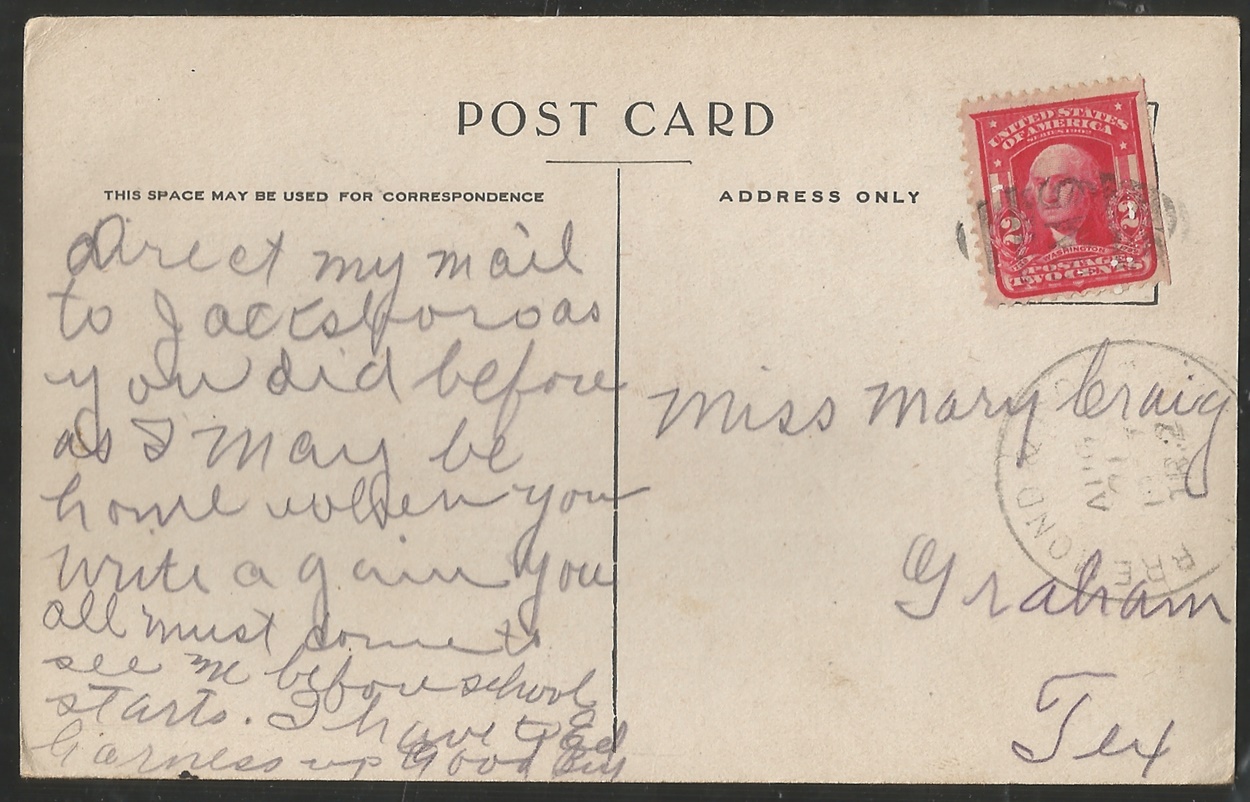 POST CARD
THIS SPACE MAY BE USED FOR CORRESPONDENCE
ADDRESS ONLY
UNITED STATES
OF AMERICA
SERIES 1902
WASHINGTON
2 2
POSTAGE
TWO CENTS
Direct my mail
to Jacksboro as
you did before
as I may be
home when you
write again you
all must come to
see me before school
starts. I have to
up Good By
Miss Mary Craig
Graham
Tex
AUG